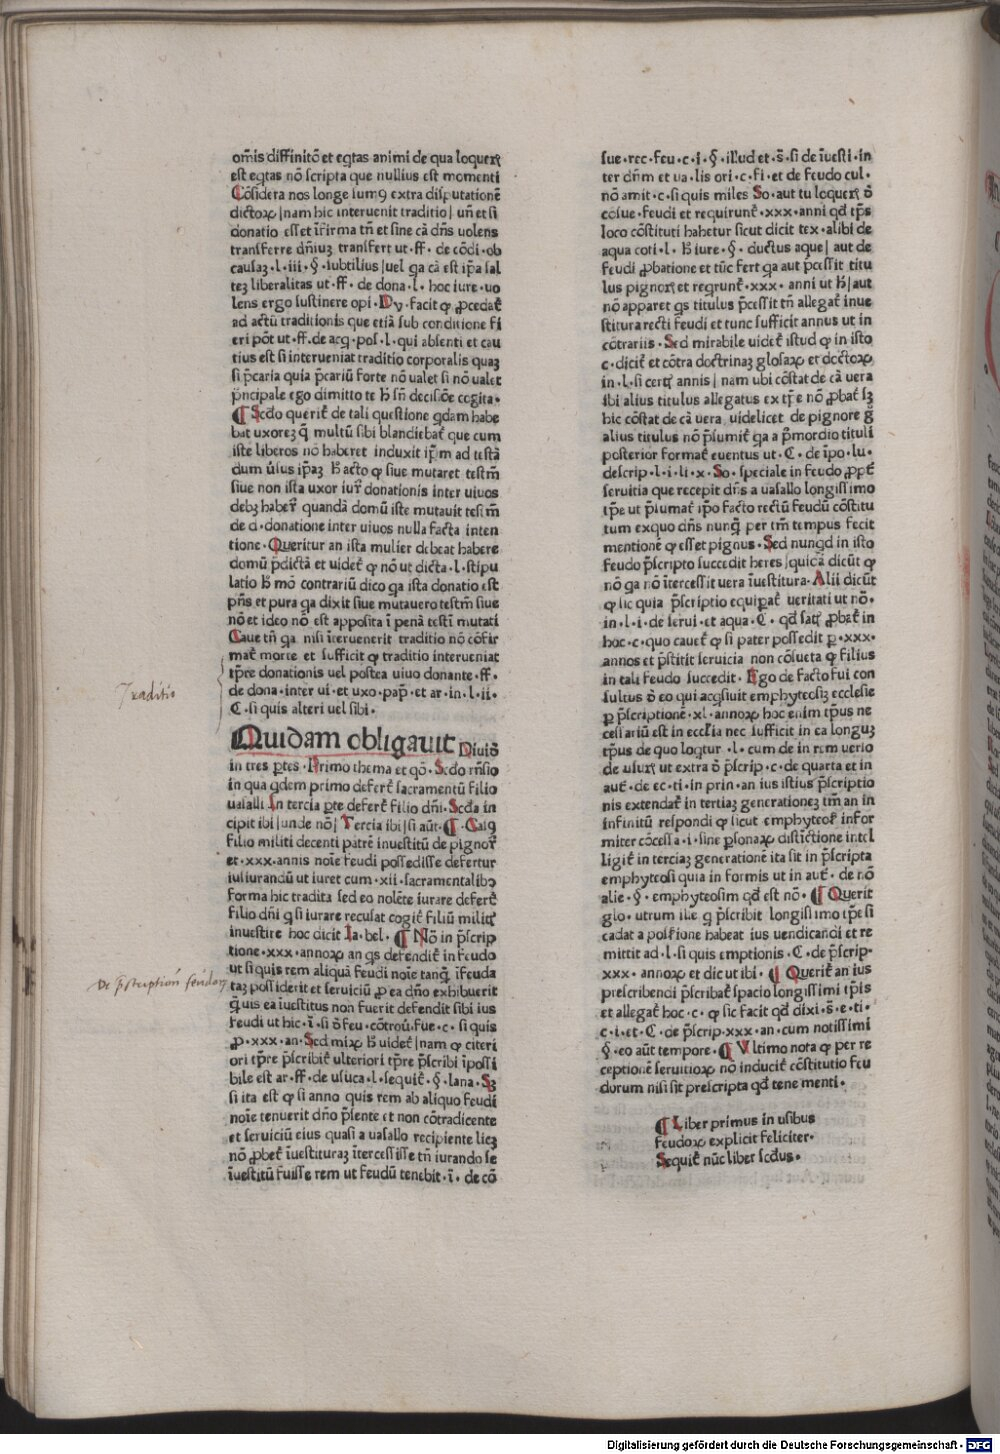 om̄is diffinitō et eq̄tas animi de qua loquer̄ꝭ
est eq̄tas nō scripta que nullius est momenti
Cōsidera nos longe iumꝯ extra disputationē
dictoꝝ | nam hic interuenit traditio | un̄ et si
donatio esset īfirma tn̄ et sine cā dn̄s uolens
transferre dn̄iuꝫ transfert ut · ff · de cōdi · ob
causaꝫ · l · iii · § · subtilius | uel qa cā est ip̄a sal
teꝫ liberalitas ut · ff · de dona · l · hoc iure · uo
lens ergo sustinere opi · Dy · facit ꝙ ꝓcedat̄
ad actū traditionis que etiā sub conditione fi
eri pōt ut · ff · de acq · pos · l · qui absenti et cau
tius est si interueniat traditio corporalis quaꝫ
si p̄caria quia p̄cariū forte nō ualet si nō ualet
p̄ncipale ego dimitto te h̄ sn̄ decisiōe cogita ·
¶ Scdo querit̄ de tali questione qdam habe
bat uxoreꝫ q̄ multū sibi blandiebat̄ que cum
iste liberos nō haberet induxit ip̄m ad testā
dum ūsus ip̄aꝫ h̄ acto ꝙ siue mutaret testm̄
siue non ista uxor iur̄ donationis inter uiuos
debꝫ haber̄ quandā domū iste mutauit testm̄
de d · donatione inter uiuos nulla facta inten
tione · Queritur an ista mulier debeat habere
domū p̄dictā et uidet̄ ꝙ nō ut dicta · l · stipu
latio h̄ mō contrariū dico qa ista donatio est
pn̄s et pura qa dixit siue mutauero testm̄ siue
nō et ideo nō est apposita ī penā testī mutati
Caue tn̄ qa nisi īteruenerit traditio nō cōfir
mat̄ morte et sufficit ꝙ traditio interueniat
tp̄re donationis uel postea uiuo donante · ff ·
de dona · inter ui · et uxo · pap̄ · et ar · in · l · ii ·
C · si quis alteri uel sibi ·
Traditio
Quidam obligauit Diuiō
in tres ꝑtes · Primo thema et qō · Scdo rn̄sio
in qua qdem primo defert̄ sacramentū filio
uasalli In tercia ꝑte defert̄ filio dn̄i · Scda in
cipit ibi | unde nō | Tercia ibi | si aūt · ¶ · Caiꝯ
filio militi decenti patrē inuestitū de pignor̄
et · xxx · annis noīe feudi possedisse defertur
iusiurandū ut iuret cum · xii · sacramentalibꝫ
forma hic tradita sed eo nolēte iurare defert̄
filio dn̄i q si iurare recusat cogit̄ filiū militꝭ
inuestire hoc dicit Ia · bel · ¶ Nō in p̄scrip
tione · xxx · annoꝝ an qs defendit̄ in feudo
ut si quis rem aliquā feudi noīe tanq̄ īfeuda
De p̄scriptionū feudorꝫ
taꝫ possiderit et seruiciū ꝓ ea dn̄o exhibuerit
q̄uis ea īuestitus non fuerit defendit sibi ius
feudi ut hic · ī · si ō feu · cōtroū · fue · c · si quis
ꝑ · xxx · an · Sed miꝝ h̄ uidet̄ | nam ꝙ citeri
ori tp̄re p̄scribit̄ ulteriori tp̄re p̄scribi īpossi
bile est ar · ff · de usuca · l · sequit̄ · § · lana · Sꝫ
si ita est ꝙ si anno quis rem ab aliquo feudi
noīe tenuerit dn̄o p̄sente et non cōtradicente
et seruiciū eius quasi a uasallo recipiente licꝫ
nō ꝓbet̄ īuestituraꝫ ītercessisse tn̄ iurando se
īuestitū fuisse rem ut feudū tenebit · ī · de cō
sue · rec · feu · c · i · § · illud et · s̄ · si de īuesti · in
ter dn̄m et ua · lis ori · c · fi · et de feudo cul ·
nō amit · c · si quis miles So · aut tu loquer̄ꝭ ō
cōsue · feudi et requirunt̄ · xxx · anni qd tp̄s
loco cōstituti habetur sicut dicit tex · alibi de
aqua coti · l · h̄ iure · § · ductus aque | aut de
feudi ꝓbatione et tūc fert qa aut p̄cessit titu
lus pignorꝭ et reqrunt̄ · xxx · anni ut h̄ | aut
nō apparet qs titulus p̄cessit tn̄ allegat̄ inue
stitura recti feudi et tunc sufficit annus ut in
cōtrariis · Sed mirabile uidet̄ istud ꝙ in isto
c · dicit̄ et cōtra doctrinaꝫ glosaꝝ et doctoꝝ
in · l · si certꝭ annis | nam ubi cōstat de cā uera
ibi alius titulus allegatus ex tp̄re nō ꝓbat̄ sꝫ
hic cōstat de cā uera uidelicet de pignore g̊
alius titulus nō p̄sumit̄ qa a p̄mordio tituli
posterior format̄ euentus ut · C · de īpo · lu ·
descrip · l · i · li · x · So · speciale in feudo ꝓpt̄
seruitia que recepit dn̄s a uasallo longissimo
tp̄e ut p̄sumat̄ ip̄o facto rectū feudū cōstitu
tum exquo dn̄s nunq̄ per tm̄ tempus fecit
mentionē ꝙ esset pignus · Sed nunqd in isto
feudo p̄scripto succedit heres | quidā dicūt ꝙ
nō qa nō ītercessit uera īuestitura · Alii dicūt
ꝙ sic quia p̄scriptio equipat̄ ueritati ut nō ·
in · l · i · de serui · et aqua · C · qd satꝭ ꝓbat̄ in
hoc · c · quo cauet̄ ꝙ si pater possedit ꝑ · xxx ·
annos et p̄stitit seruicia non cōsueta ꝙ filius
in tali feudo succedit · Ego de facto fui con
sultus ō eo qui acqsiuit emphyteosiꝫ ecclesie
ꝑ p̄scriptionē · xl · annoꝝ hoc enim tp̄us ne
cessariū est in eccl̄ia nec sufficit in ea longuꝫ
tp̄us de quo loqtur · l · cum de in rem uerso
de usurꝭ ut extra ō p̄scrip · c · de quarta et in
aut̄ · de ec · ti · in prin · an ius istius p̄scriptio
nis extendat̄ in tertiaꝫ generationeꝫ tm̄ an in
infinitū respondi ꝙ sicut emphyteos̄ infor
miter cōcessa · i · sine ꝑsonaꝝ distīctione intel
ligit̄ in terciaꝫ generationē ita sit in p̄scripta
emphyteosi quia in formis ut in aut̄ · de nō
alie · § · emphyteosim qd est nō · ¶ Querit
glo · utrum ille q p̄scribit longissimo tp̄e si
cadat a possione habeat ius uendicandi et re
mittit ad · l · si quis emptionis · C · de p̄scrip ·
xxx · annoꝝ et dic ut ibi · ¶ Querit̄ an ius
prescribendi p̄scribat̄ spacio longissimi tp̄is
et allegat̄ hoc · c · ꝙ sic facit qd dixi · s̄ · e · ti ·
c · i · et · C · de p̄scrip · xxx · an · cum notissimi
§ · eo aūt tempore · ¶ Vltimo nota ꝙ per re
ceptionē seruitioꝝ nō inducit̄ cōstitutio feu
dorum nisi sit prescripta qd tene menti ·
¶ Liber primus in usibus
feudoꝝ explicit feliciter ·
Sequit̄ nūc liber scdus ·
Digitalisierung gefördert durch die Deutsche Forschungsgemeinschaft · DFG